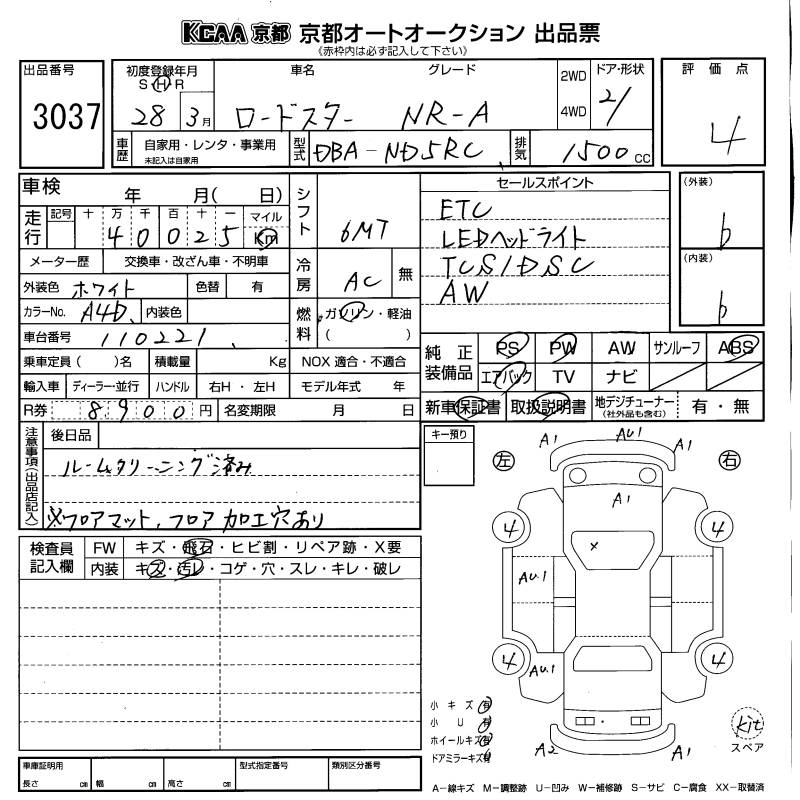 KCAA 京都 京都オートオークション 出品票
(赤枠内は必ず記入して下さい)
出品番号 3037
初度登録年月 S H R 28 3月
車名 ロードスター グレード NR-A
2WD 4WD
ドア・形状 2/
評価点 4
車歴 自家用・レンタ・事業用 未記入は自家用
型式 DBA-ND5RC
排気 1500 cc
車検 年 月( 日)
走行 記号 十 万 千 百 十 一 マイル
40025 Km
シフト 6MT
セールスポイント
ETC
LEDヘッドライト
TCS/DSC
AW
(外装) b
(内装) b
メーター歴 交換車・改ざん車・不明車
外装色 ホワイト 色替 有
冷房 AC 無
カラーNo. A4D 内装色
燃料 ガソリン・軽油 ( )
車台番号 110221
乗車定員( )名 積載量 Kg NOX 適合・不適合
輸入車 ディーラー・並行 ハンドル 右H・左H モデル年式 年
R券 8900円 名変期限 月 日
純正装備品 PS PW AW サンルーフ ABS
エアバック TV ナビ
新車保証書 取扱説明書 地デジチューナー (社外品も含む) 有・無
注意事項(出品店記入)
後日品
ルームクリーニング済み
※フロアマット、フロア加工穴あり
キー預り
検査員記入欄 FW キズ・飛石・ヒビ割・リペア跡・X要
内装 キズ・汚レ・コゲ・穴・スレ・キレ・破レ
左 右
A1 AU1 A1
A1
4 4
×
AU1
4 4
AU1
A2 A1
小キズ 有
小U 有
ホイールキズ 有
ドアミラーキズ 有
kit
スペア
車庫証明用 型式指定番号 類別区分番号
長さ cm 幅 cm 高さ cm
A-線キズ M-調整跡 U-凹み W-補修跡 S-サビ C-腐食 XX-取替済